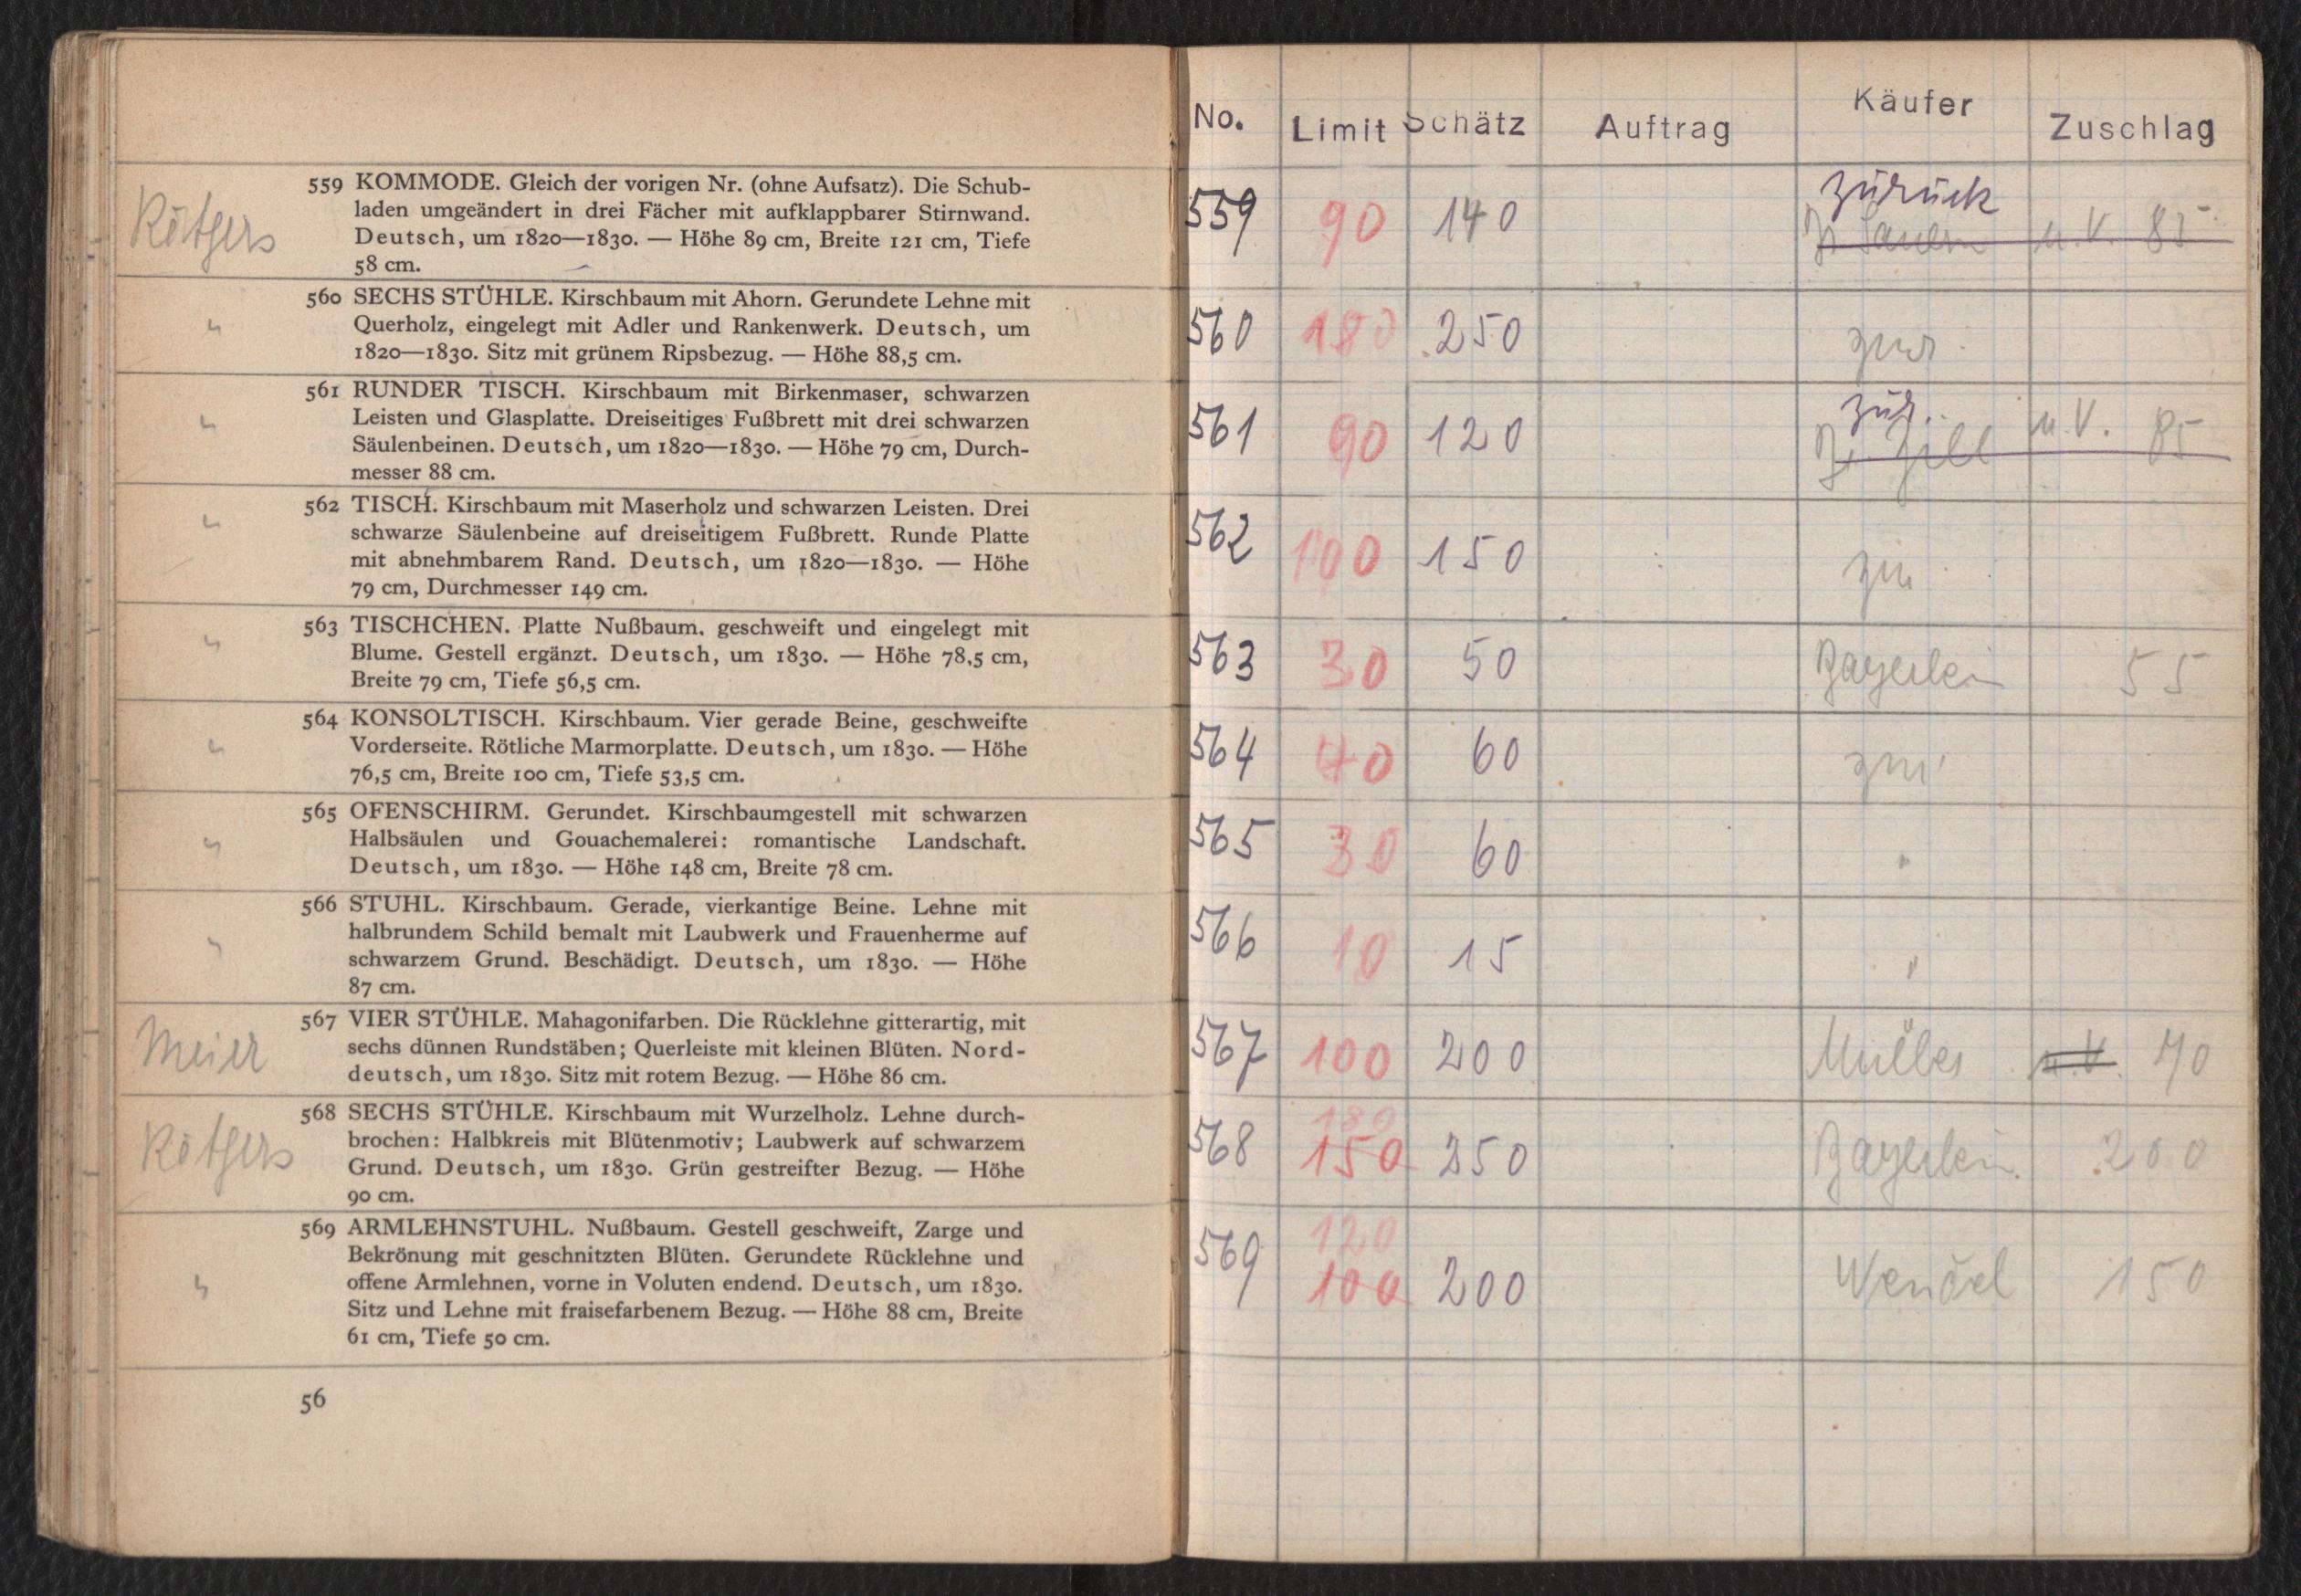 Rötgers
559 KOMMODE. Gleich der vorigen Nr. (ohne Aufsatz). Die Schub-
laden umgeändert in drei Fächer mit aufklappbarer Stirnwand.
Deutsch, um 1820—1830. — Höhe 89 cm, Breite 121 cm, Tiefe
58 cm.
" 560 SECHS STÜHLE. Kirschbaum mit Ahorn. Gerundete Lehne mit
Querholz, eingelegt mit Adler und Rankenwerk. Deutsch, um
1820—1830. Sitz mit grünem Ripsbezug. — Höhe 88,5 cm.
" 561 RUNDER TISCH. Kirschbaum mit Birkenmaser, schwarzen
Leisten und Glasplatte. Dreiseitiges Fußbrett mit drei schwarzen
Säulenbeinen. Deutsch, um 1820—1830. — Höhe 79 cm, Durch-
messer 88 cm.
" 562 TISCH. Kirschbaum mit Maserholz und schwarzen Leisten. Drei
schwarze Säulenbeine auf dreiseitigem Fußbrett. Runde Platte
mit abnehmbarem Rand. Deutsch, um 1820—1830. — Höhe
79 cm, Durchmesser 149 cm.
" 563 TISCHCHEN. Platte Nußbaum, geschweift und eingelegt mit
Blume. Gestell ergänzt. Deutsch, um 1830. — Höhe 78,5 cm,
Breite 79 cm, Tiefe 56,5 cm.
" 564 KONSOLTISCH. Kirschbaum. Vier gerade Beine, geschweifte
Vorderseite. Rötliche Marmorplatte. Deutsch, um 1830. — Höhe
76,5 cm, Breite 100 cm, Tiefe 53,5 cm.
" 565 OFENSCHIRM. Gerundet. Kirschbaumgestell mit schwarzen
Halbsäulen und Gouachemalerei: romantische Landschaft.
Deutsch, um 1830. — Höhe 148 cm, Breite 78 cm.
" 566 STUHL. Kirschbaum. Gerade, vierkantige Beine. Lehne mit
halbrundem Schild bemalt mit Laubwerk und Frauenherme auf
schwarzem Grund. Beschädigt. Deutsch, um 1830. — Höhe
87 cm.
Meier
567 VIER STÜHLE. Mahagonifarben. Die Rücklehne gitterartig, mit
sechs dünnen Rundstäben; Querleiste mit kleinen Blüten. Nord-
deutsch, um 1830. Sitz mit rotem Bezug. — Höhe 86 cm.
Rötgers
568 SECHS STÜHLE. Kirschbaum mit Wurzelholz. Lehne durch-
brochen: Halbkreis mit Blütenmotiv; Laubwerk auf schwarzem
Grund. Deutsch, um 1830. Grün gestreifter Bezug. — Höhe
90 cm.
" 569 ARMLEHNSTUHL. Nußbaum. Gestell geschweift, Zarge und
Bekrönung mit geschnitzten Blüten. Gerundete Rücklehne und
offene Armlehnen, vorne in Voluten endend. Deutsch, um 1830.
Sitz und Lehne mit fraisefarbenem Bezug. — Höhe 88 cm, Breite
61 cm, Tiefe 50 cm.
56
No. Limit Schätz Auftrag Käufer Zuschlag
zurück
559 90 140 u.V. 85
560 180 250 zur.
zur.
561 90 120 u.V. 85
562 100 150 zur
563 30 50 Bayerlein 55
564 40 60 zur
565 30 60 "
566 10 15 "
567 100 200 u.V. 70
180
568 150 250 Bayerlein 200
120
569 100 200 Wendel 150